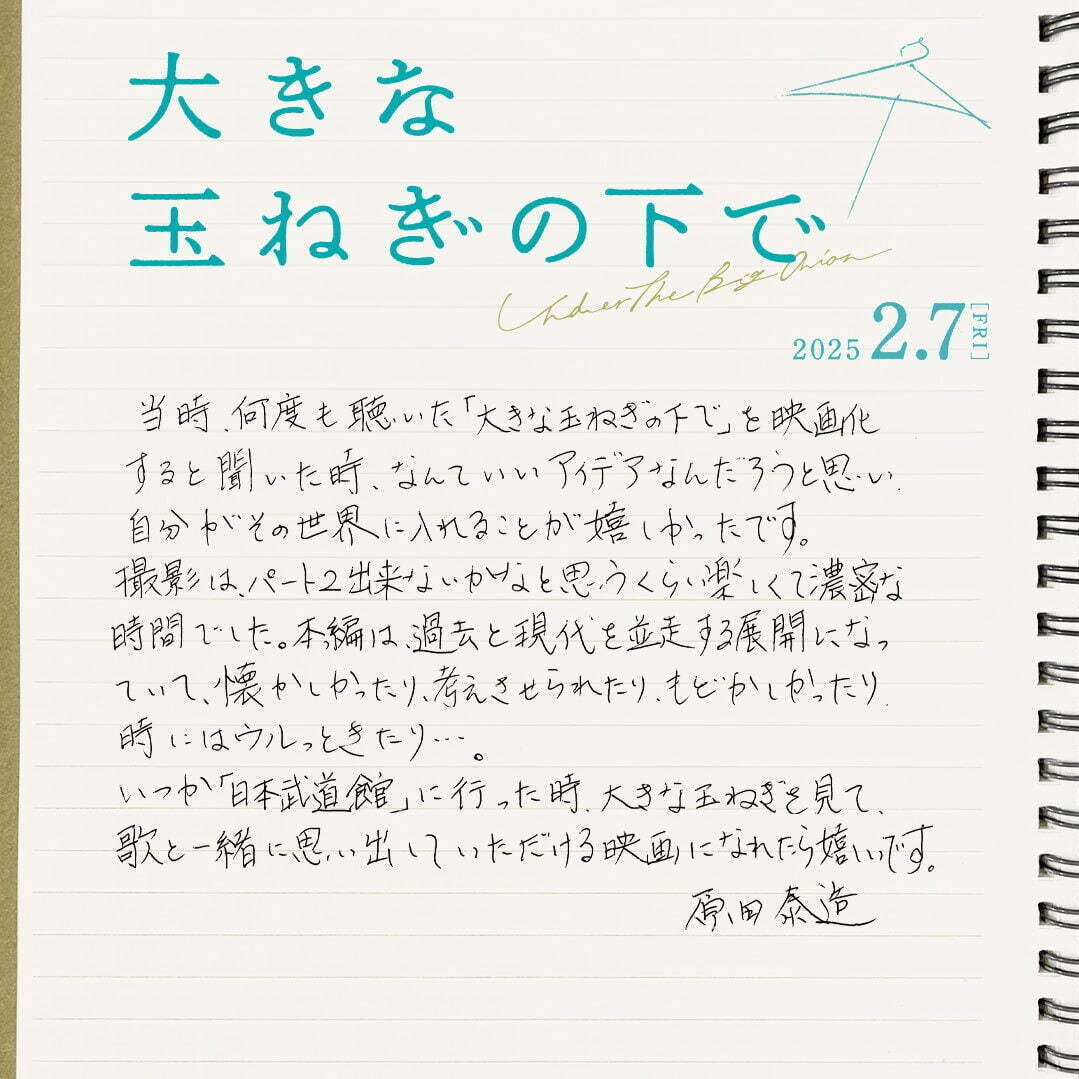 大きな
玉ねぎの下で
Under The Big Onion
2025 2.7 [FRI]
当時、何度も聴いた「大きな玉ねぎの下で」を映画化
すると聞いた時、なんていいアイデアなんだろうと思い、
自分がその世界に入れることが嬉しかったです。
撮影は、パート2出来ないかなと思うくらい楽しくて濃密な
時間でした。本編は、過去と現代を並走する展開になっ
ていて、懐かしかったり、考えさせられたり、もどかしかったり、
時にはウルっときたり…。
いつか「日本武道館」に行った時、大きな玉ねぎを見て、
歌と一緒に思い出していただける映画になれたら嬉しいです。
原田泰造